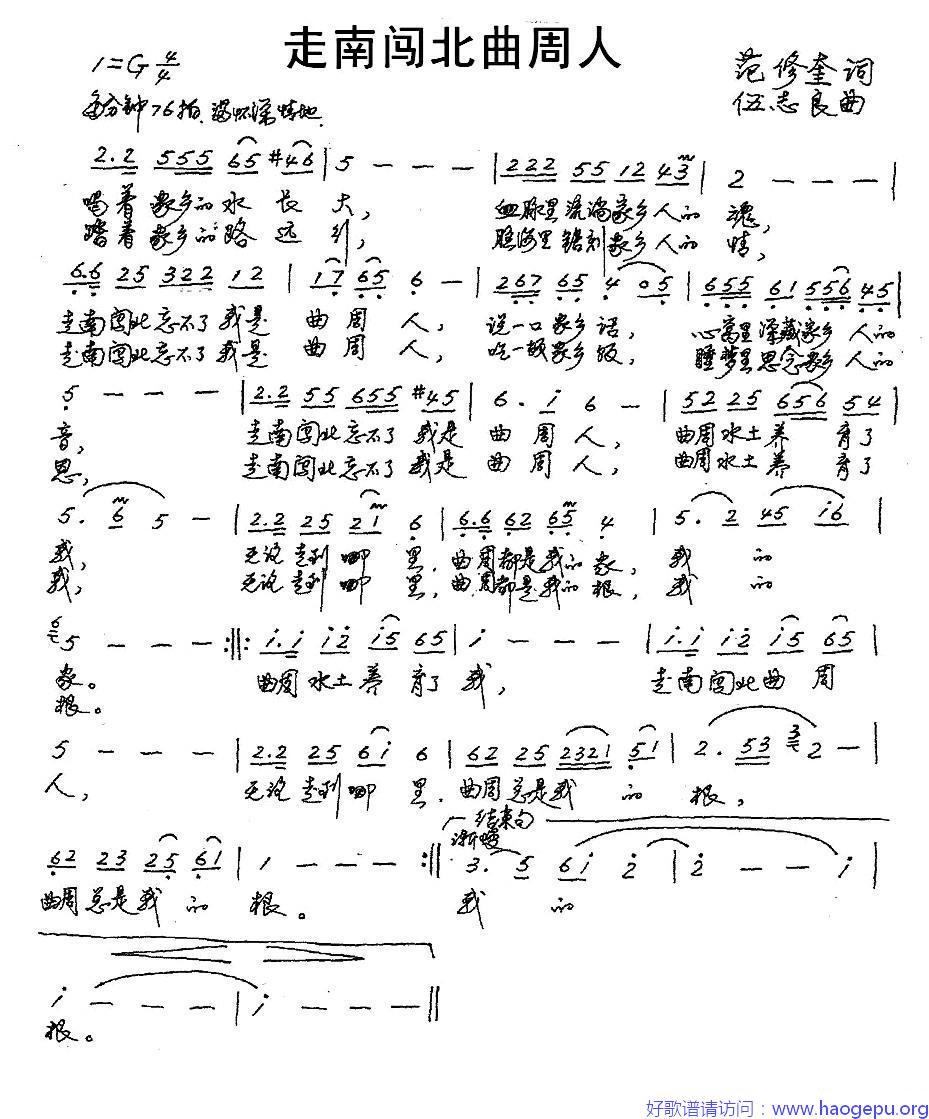 走南闯北曲周人
1=G 4/4
范修奎词
伍志良曲
每分钟76拍 满怀深情地
2.2 555 65 #46 | 5 - - - | 222 55 12 43 | 2 - - - |
喝着家乡的水长大, 血脉里流淌家乡人的魂,
踏着家乡的路远行, 脑海里镌刻家乡人的情,
6.6 25 322 12 | 17 65 6 - | 267 65 4 05 | 655 61 556 45 |
走南闯北忘不了我是曲周人, 说一口家乡话, 心窝里深藏家乡人的
走南闯北忘不了我是曲周人, 吃一顿家乡饭, 睡梦里思念家乡人的
5 - - - | 2.2 55 655 #45 | 6. i 6 - | 52 25 656 54 |
音, 走南闯北忘不了我是曲周人, 曲周水土养育了
恩, 走南闯北忘不了我是曲周人, 曲周水土养育了
5. 6 5 - | 2.2 25 21 6 | 6.6 62 65 4 | 5. 2 45 i6 |
我, 无论走到哪里, 曲周都是我的家, 我的
我, 无论走到哪里, 曲周都是我的根, 我的
6 5 - - - :||: i.i i2 i5 65 | i - - - | i.i i2 i5 65 |
家。 曲周水土养育了我, 走南闯北曲周
根。
5 - - - | 2.2 25 6i 6 | 62 25 2321 51 | 2. 53 3 2 - |
人, 无论走到哪里, 曲周总是我的根,
结束句
渐慢
62 23 25 61 | 1 - - - :|| 3. 5 6i 2 | 2 - - i |
曲周总是我的根。 我的
i - - - | i - - - ||
根。
好歌谱请访问：www.haogepu.org